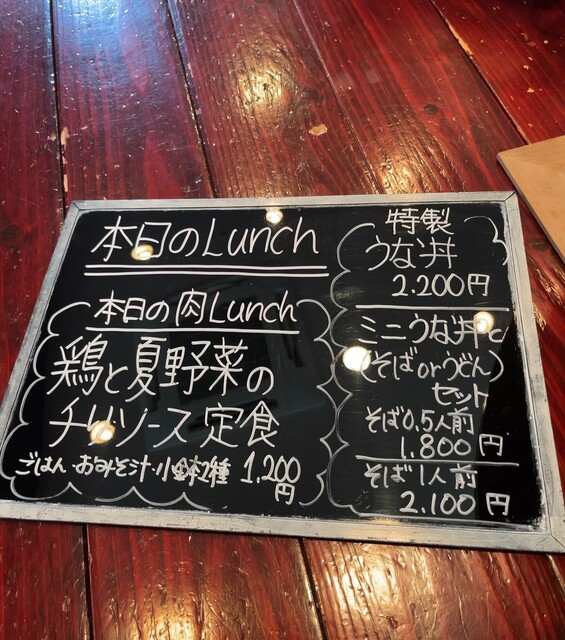 本日のLunch
本日の肉Lunch
鶏と夏野菜の
チリソース定食
ごはん・おみそ汁・小鉢2種 1,200円
特製
うな丼
2.200円
ミニうな丼と
(そばorうどん)
セット
そば0.5人前
1.800円
そば1人前
2.100円